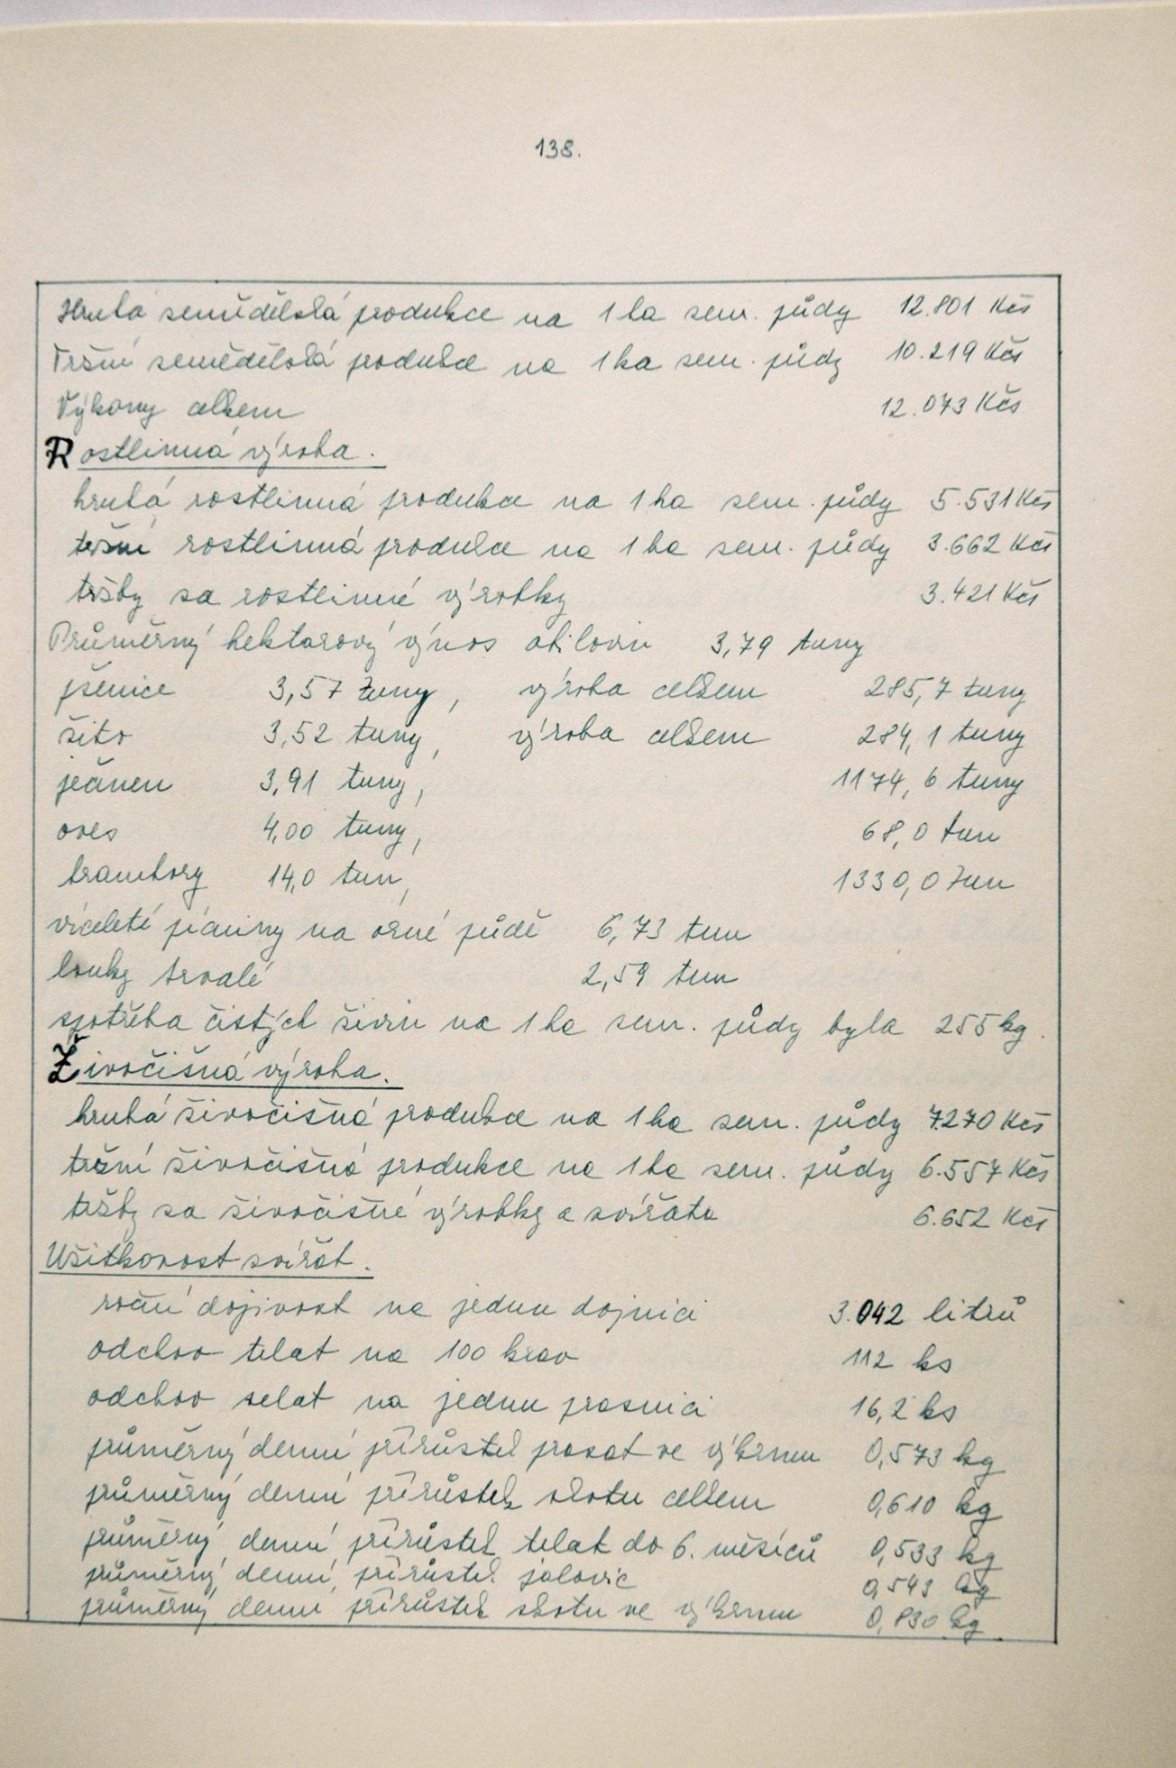 138.
Hrubá zemědělská produkce na 1 ha zem. půdy 12.801 Kčs
Tržní zemědělská produkce na 1 ha zem. půdy 10.219 Kčs
Výkony celkem 12.073 Kčs
Rostlinná výroba.
hrubá rostlinná produkce na 1 ha zem. půdy 5.531 Kčs
tržní rostlinná produkce na 1 ha zem. půdy 3.662 Kčs
tržby za rostlinné výrobky 3.421 Kčs
Průměrný hektarový výnos obilovin 3,79 tuny
pšenice 3,57 tuny, výroba celkem 285,7 tuny
žito 3,52 tuny, výroba celkem 284,1 tuny
ječmen 3,91 tuny, 1174,6 tuny
oves 4,00 tuny, 68,0 tun
brambory 14,0 tun, 1330,0 tun
víceleté pícniny na orné půdě 6,73 tun
louky trvalé 2,59 tun
spotřeba čistých živin na 1 ha zem. půdy byla 255 kg.
Živočišná výroba.
hrubá živočišná produkce na 1 ha zem. půdy 7.270 Kčs
tržní živočišná produkce na 1 ha zem. půdy 6.557 Kčs
tržby za živočišné výrobky a zvířata 6.652 Kčs
Užitkovost zvířat.
roční dojivost na jednu dojnici 3.042 litrů
odchov telat na 100 krav 112 ks
odchov selat na jednu prasnici 16,2 ks
průměrný denní přírůstek prasat ve výkrmu 0,573 kg
průměrný denní přírůstek skotu celkem 0,610 kg
průměrný denní přírůstek telat do 6. měsíců 0,533 kg
průměrný denní přírůstek jalovic 0,543 kg
průměrný denní přírůstek skotu ve výkrmu 0,830 kg.